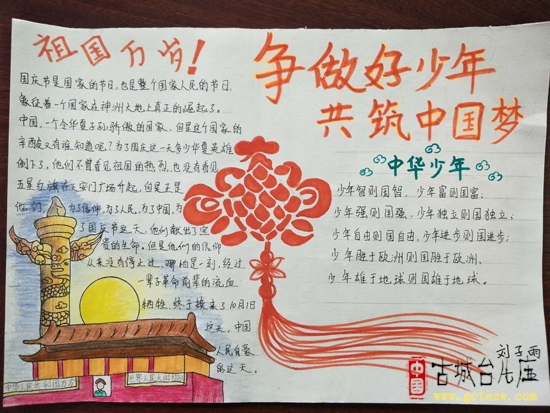 祖国万岁！
国庆节是国家的节日，也是整个国家人民的节日，
象征着一个国家在神洲大地上真正的崛起了。
中国，一个令华夏子孙骄傲的国家，但是这个国家的
辛酸又有谁知道呢？为了国庆这一天多少华夏英雄
倒下了，他们不曾看见祖国的热烈，也没有看见
五星红旗在天安门广场升起，但是正是
他们，为了信仰，为了人民，为了中国，为
了国庆节这天，他们献出了宝
贵的生命。但是他们的信仰
从来没有停止过，哪怕是一刻，经过
一辈子革命前辈的流血
牺牲，终于换来了10月1日
这天，中国
人民自豪
的这天。
争做好少年
共筑中国梦
中华少年
少年智则国智，少年富则国富；
少年强则国强，少年独立则国独立；
少年自由则国自由，少年进步则国进步；
少年胜于欧洲则国胜于欧洲，
少年雄于地球则国雄于地球。
刘子雨
中国 古城台儿庄
www.gctezw.com